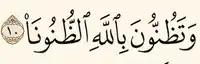 وَتَظُنُّونَ بِٱللَّهِ ٱلظُّنُونَا۠ ١٠